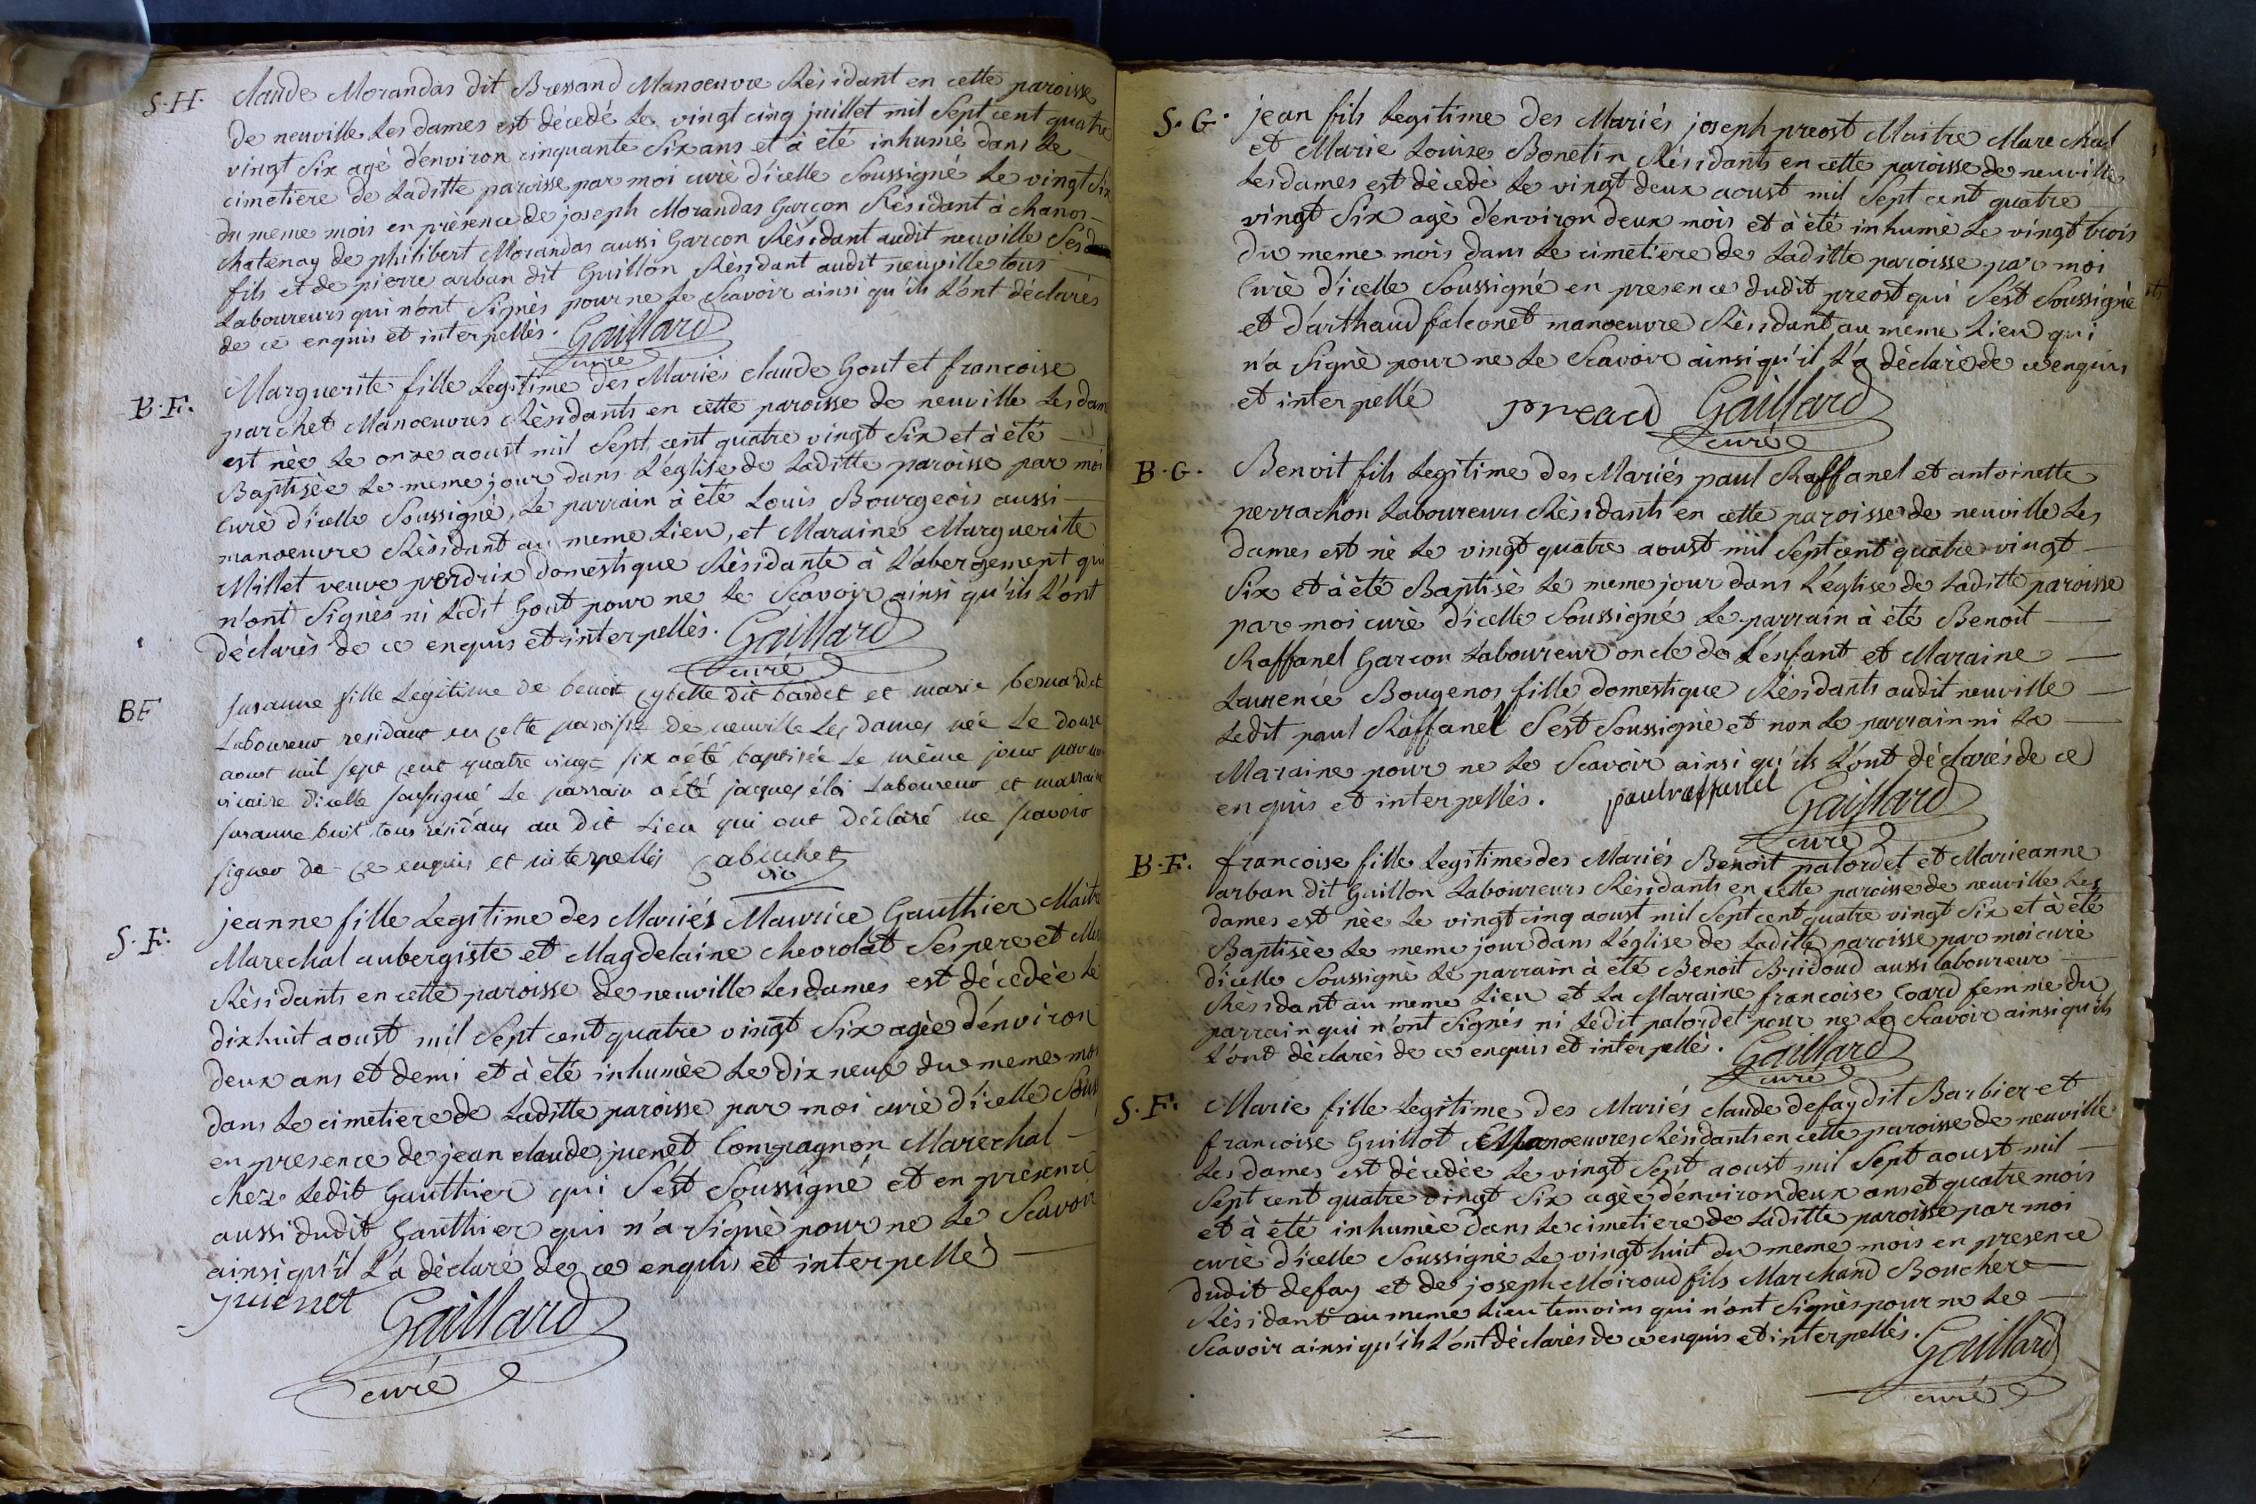 S.H. claude Morandas dit Bressand Manoeuvre Résidant en cette paroisse
de neuville Les dames est décedé Le vingt cinq juillet mil Sept cent quatre
vingt Six agé d'environ cinquante Six ans et à été inhumé dans Le
cimetiere de Laditte paroisse par moi curé d'icelle Soussigné Le vingt Six
du meme mois en présence de joseph Morandas Garçon Résidant à chanos-
chatenay de philibert Morandas aussi Garçon Résidant audit neuville Ses
fils et de pierre arban dit Guillon Résidant audit neuville tous
Laboureurs qui n'ont Signés pour ne Le Scavoir ainsi qu'ils L'ont déclarés
de ce enquis et interpellés. Gaillard
curé
B.F. Marguerite fille Legitime des Mariés claude Gout et francoise
parchet Manoeuvres Résidants en cette paroisse de neuville Les dam
est née Le onze aoust mil Sept cent quatre vingt Six et à été
Baptisée Le meme jour dans L'église de Laditte paroisse par moi
Curé d'icelle Soussigné, Le parrain à été Louis Bourgeois aussi
manoeuvre Résidant au meme Lieu, et Maraine Marguerite
Millet veuve perdrix domestique Résidante à L'abergement qui
n'ont Signes ni Ledit Gout pour ne Le Scavoir ainsi qu'ils L'ont
déclarés de ce enquis et interpellés. Gaillard
curé
BF Susanne fille Legitime de benoit cybelle dit bardet et marie bernardet
Laboureur residant en cette paroisse de neuville Les dames née Le douze
aoust mil sept cent quatre vingt six a été baptisée Le même jour par
vicaire d'icelle soussigné Le parrain a été jacques éloi Laboureur et marraine
susanne buit tous résidans au dit Lieu qui ont déclaré ne scavoir
signer de ce enquis et interpellés Cabuchet
vic
S.F. jeanne fille Legitime des Mariés Maurice Gauthier Maitre
Marechal aubergiste et Magdelaine chevrolat Ses pere et
Résidants en cette paroisse de neuville Les dames est décedée Le
dix huit aoust mil Sept cent quatre vingt Six agée d'environ
deux ans et demi et à été inhumée Le dix neuf du meme moi
dans Le cimetiere de Laditte paroisse par moi curé d'icelle Sous
en presence de jean claude juenet Compagnon Maréchal
chez Ledit Gauthier qui S'est Soussigné et en présence
aussi dudit Gauthier qui n'a Signé pour ne Le Scavoir
ainsi qu'il L'a déclaré de ce enquis et interpellé
juenet Gaillard
curé
S.G. jean fils Legitime des Mariés joseph preost Maitre Marechal
et Marie Louise Bonetin Résidants en cette paroisse de neuville
Les dames est décedé Le vingt deux aoust mil Sept cent quatre
vingt Six agé d'environ deux mois et à été inhumé Le vingt trois
du meme mois dans Le cimetiere de Laditte paroisse par moi
Curé d'icelle Soussigné en presence dudit preost qui S'est Soussigné
et d'arthaud falconet manoeuvre Résidant au meme Lieu qui
n'a Signé pour ne Le Scavoir ainsi qu'il L'a déclaré de ce enquis
et interpellé Gaillard
curé
B.G. Benoit fils Legitime des Mariés paul Raffanel et antoinette
perrachon Laboureurs Résidants en cette paroisse de neuville Les
dames est né Le vingt quatre aoust mil Sept cent quatre vingt
Six et à été Baptisé Le meme jour dans L'église de Laditte paroisse
par moi curé d'icelle Soussigné Le parrain à été Benoit
Raffanel Garcon Laboureur oncle de L'enfant et Maraine
Laurence Bougenos fille domestique Résidants audit neuville
Ledit paul Raffanel S'est Soussigné et non Le parrain ni La
Maraine pour ne Le Scavoir ainsi qu'ils L'ont déclarés de ce
enquis et interpellés. paul raffanel Gaillard
curé
B.F. francoise fille Legitime des Mariés Benoit palordet et Marieanne
arban dit Guillon Laboureurs Résidants en cette paroisse de neuville Les
dames est née Le vingt cinq aoust mil Sept cent quatre vingt Six et à été
Baptisée Le meme jour dans L'église de Laditte paroisse par moi curé
d'icelle Soussigné Le parrain à été Benoit Bridoud aussi laboureur
Residant au meme Lieu et La Maraine francoise Coard femme du
parrain qui n'ont Signés ni Ledit palordet pour ne Le Scavoir ainsi qu'ils
L'ont déclarés de ce enquis et interpellés. Gaillard
curé
S.F. Marie fille Legitime des Mariés claude defay dit Barbier et
francoise Guillot Manoeuvres Résidants en cette paroisse de neuville
Les dames est décedée Le vingt Sept aoust mil Sept aoust mil
Sept cent quatre vingt Six agée d'environ deux ans et quatre mois
et à été inhumée dans Le cimetiere de Laditte paroisse par moi
curé d'icelle Soussigné Le vingt huit du meme mois en presence
dudit defay et de joseph Moiroud fils Marchand Boucher
Résidant au meme Lieu temoins qui n'ont Signés pour ne Le
Scavoir ainsi qu'ils L'ont déclarés de ce enquis et interpellés. Gaillard
curé